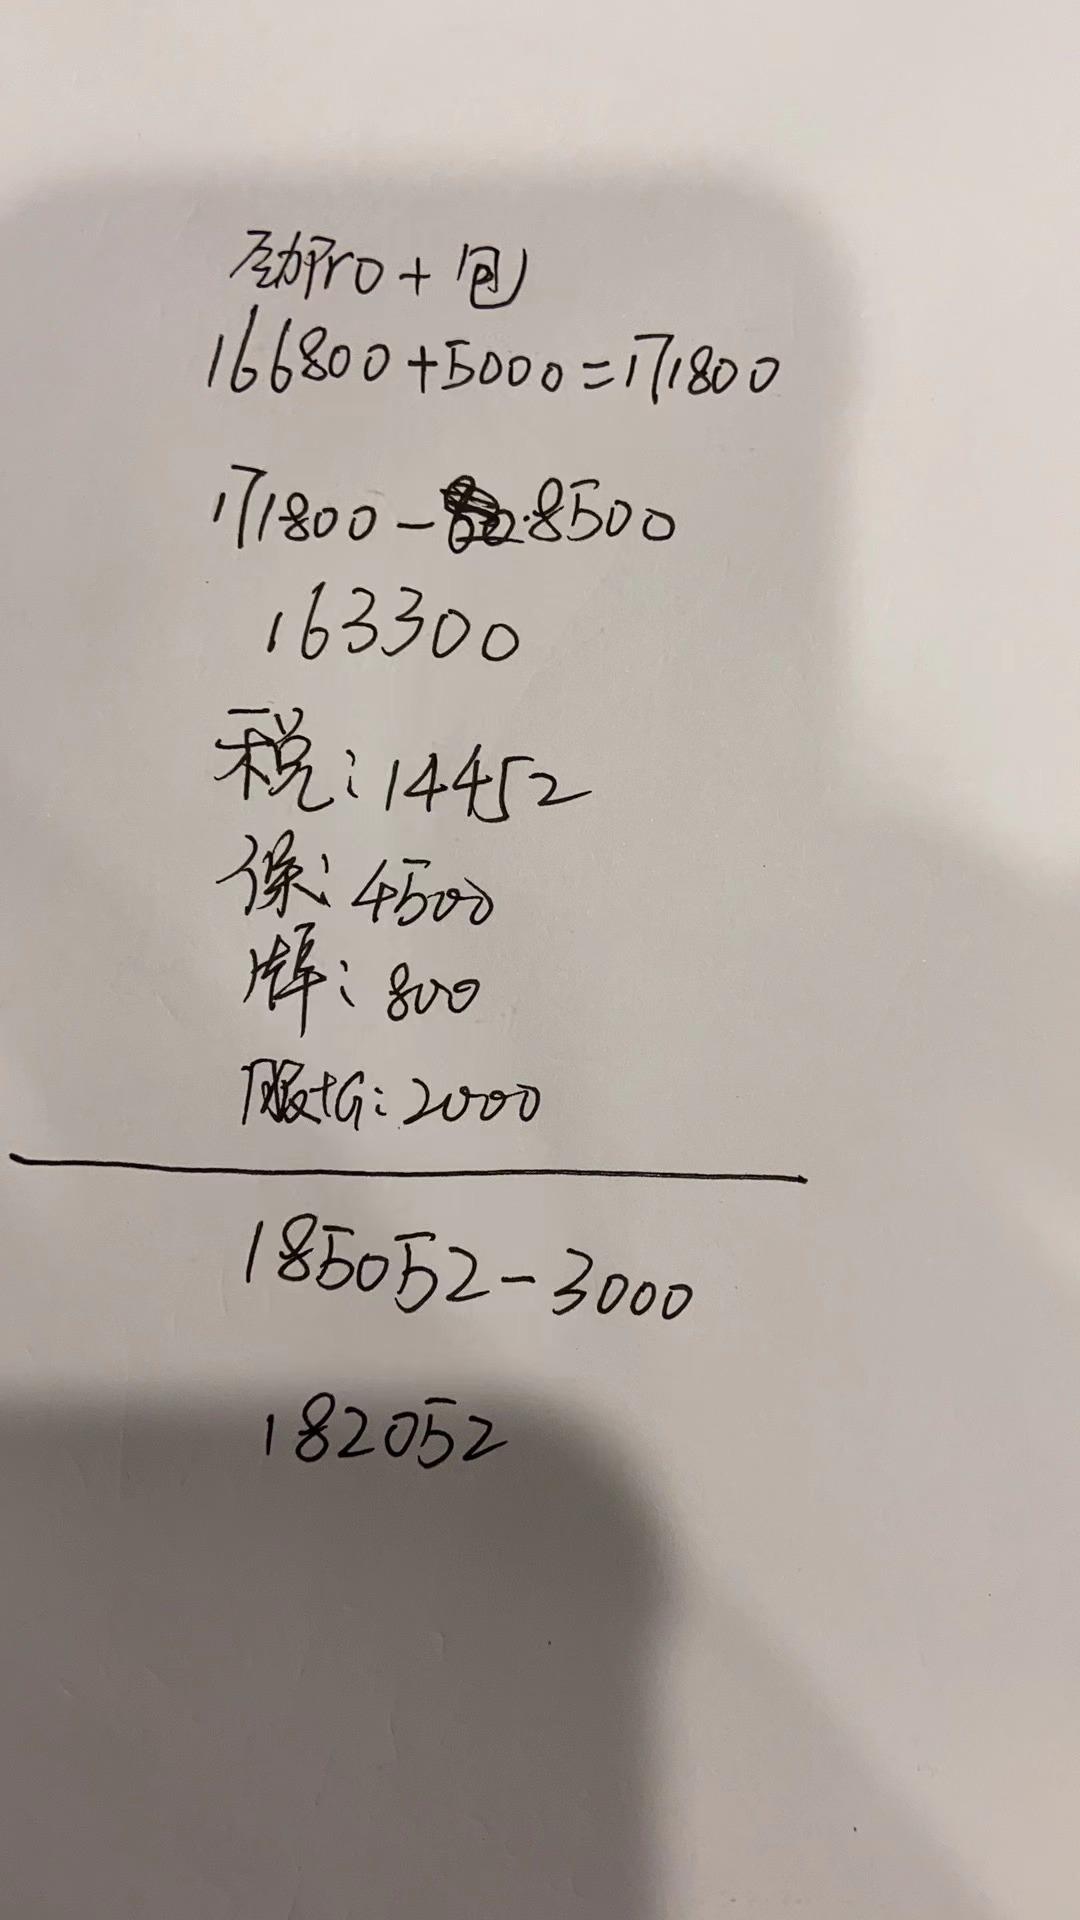 劲Pro+包
166800+5000=171800
171800-8500
163300
税:14452
保:4500
牌:800
服+G:2000
185052-3000
182052